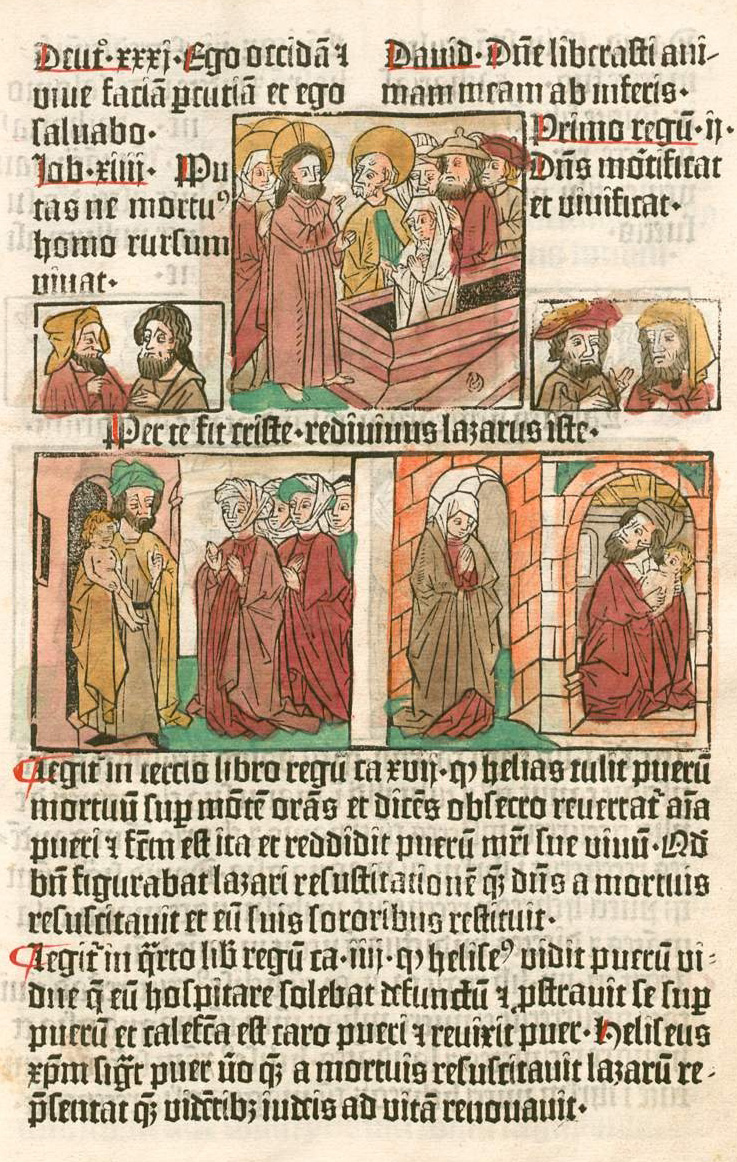 Deut᷒·xxxj·Ego occidā ⁊
viue faciā ꝑcutiā et ego
saluabo·
Job·xiiij· Pu
tas ne mortuꝰ
homo rursum
viuat·
Dauid·Dn̄e liberasti ani-
mam meam ab inferis·
Primo regū·ij·
Dn̄s mōtificat
et viuificat·
Per te fit criste·rediuiuus lazarus iste·
Legit᷑ in tercio libro regū ca xvij·ꝙ helias tulit puerū
mortuū suꝑ mōtē orās et dicēs obsecro reuertat᷑ aīa
pueri ⁊ fc̄m est ita et reddidit puerū mr̄i sue viuū·Qd̄
bn̄ figurabat lazari resuscitationē qꝫ dn̄s a mortuis
resuscitauit et eū suis sororibus restituit·
Legit᷑ in q̄rto lib̄ regū ca·iiij·ꝙ heliseꝰ vidit puerū vi-
due q̄ eū hospitare solebat defunctū ⁊ ꝓstrauit se suꝑ
puerū et calefc̄a est caro pueri ⁊ reuixit puer·Heliseus
xp̄m sigt᷑ puer v̄o qꝫ a mortuis resuscitauit lazarū re-
p̄sentat qꝫ vidētibꝫ iudeis ad vitā renouauit·